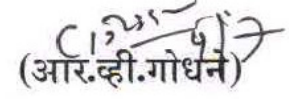 (आर.व्ही.गोधने)